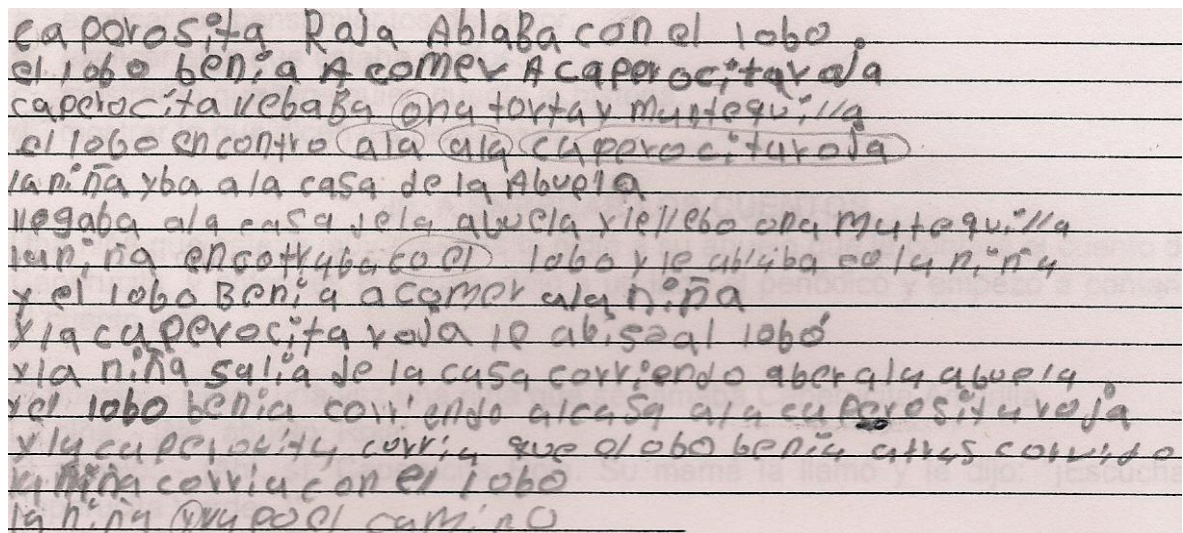 caporosita Raja AblaBa con el lobo.
el lobo benia A comer A caperocitaroja
caperocita llebaBa ona torta y muntequilla
el lobo encontro ala ala caperocituroja
la niña yba ala casa de la Abuela
llegaba ala casa dela abuela y le llebo ona mutequilla
lan,na encottraba co el lobo y le ablaba co la niña
y el lobo Benia a comer ala niña
y la caperocita roja le abisaal lobo
y la niña salia de la casa corriendo aber ala abuela
y el lobo benia corriendo alcasa ala caperosita roja
y la caperocita corria que elobo benia atras corrido
la niña corria con el lobo
la niña el camino